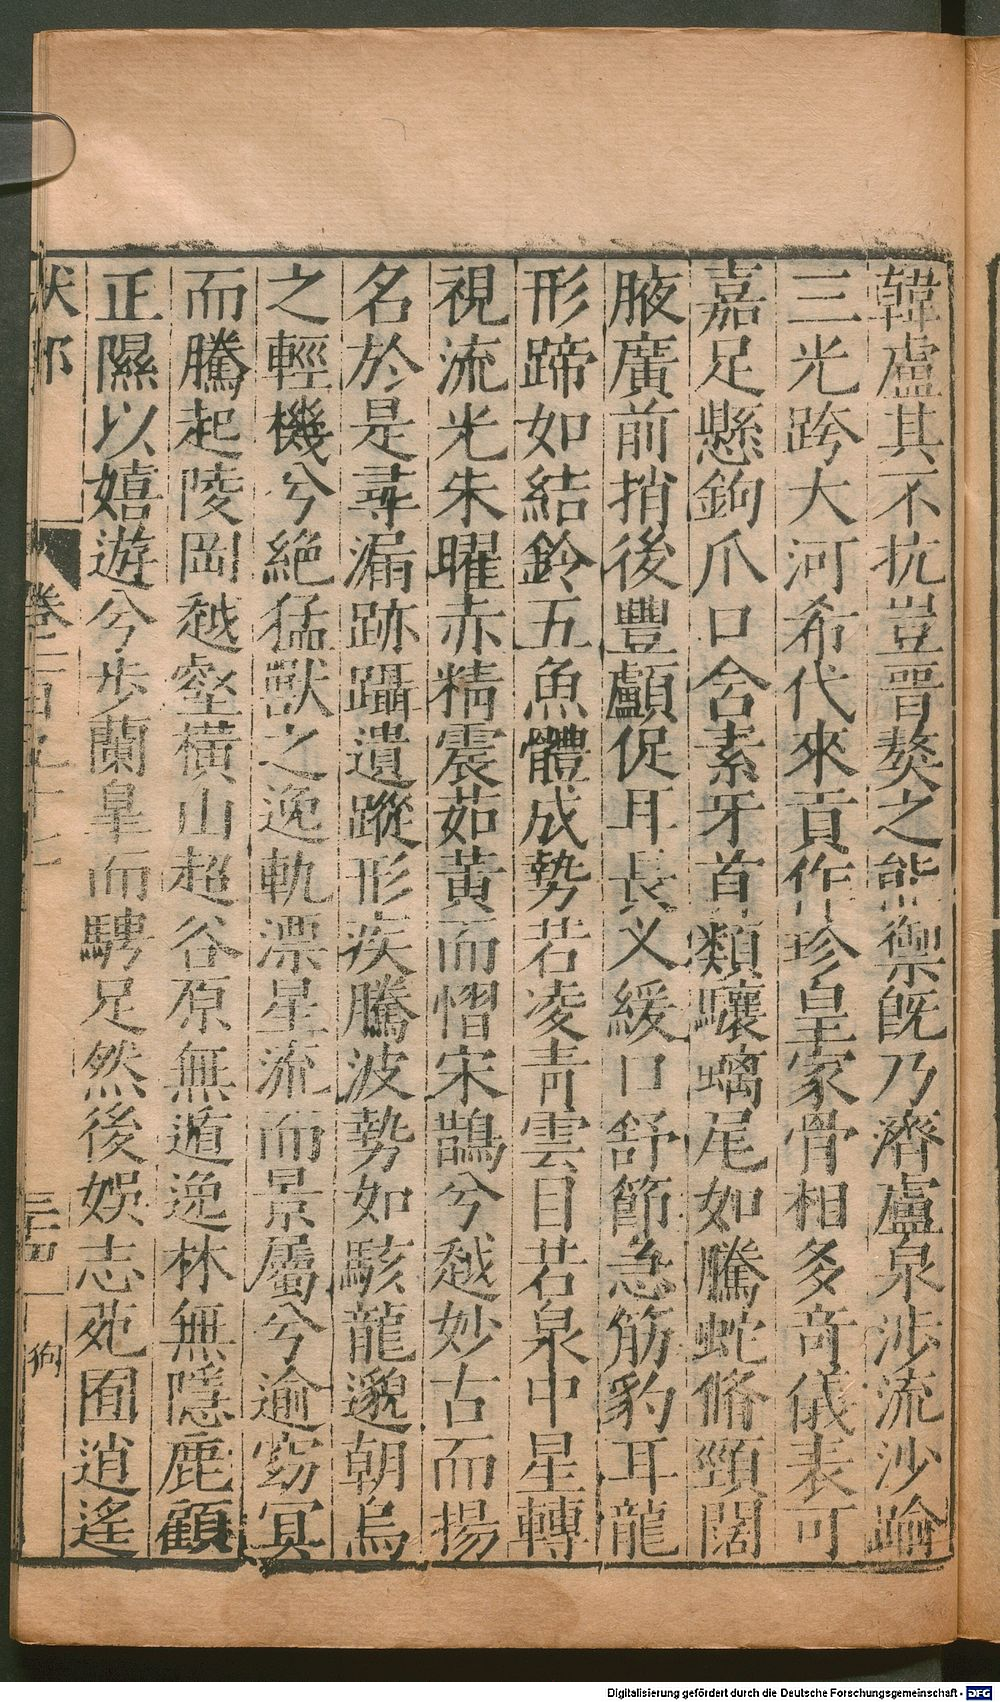 韓盧其不抗豈晋獒之能禦既乃濟盧泉涉流沙踰
三光跨大河希代來貢作珍皇家骨相多奇儀表可
嘉足懸鉤爪口含素牙首類驤螭尾如騰蛇脩頸闊
腋廣前捎後豐顱促耳長义緩口舒節急筋豹耳龍
形蹄如結鈴五魚體成勢若凌青雲目若泉中星轉
視流光朱曜赤精震茹黃而慴宋鵲兮越妙古而揚
名於是尋漏跡躡遺蹤形疾騰波勢如駭龍邈朝烏
之輕機兮絶猛獸之逸軌漂星流而景屬兮逾窈冥
而騰起陵岡越壑横山超谷原無遁逸林無隱鹿顧
正隰以嬉遊兮步蘭臯而騁足然後娛志苑囿逍遙
狗
Digitalisierung gefördert durch die Deutsche Forschungsgemeinschaft - DFG